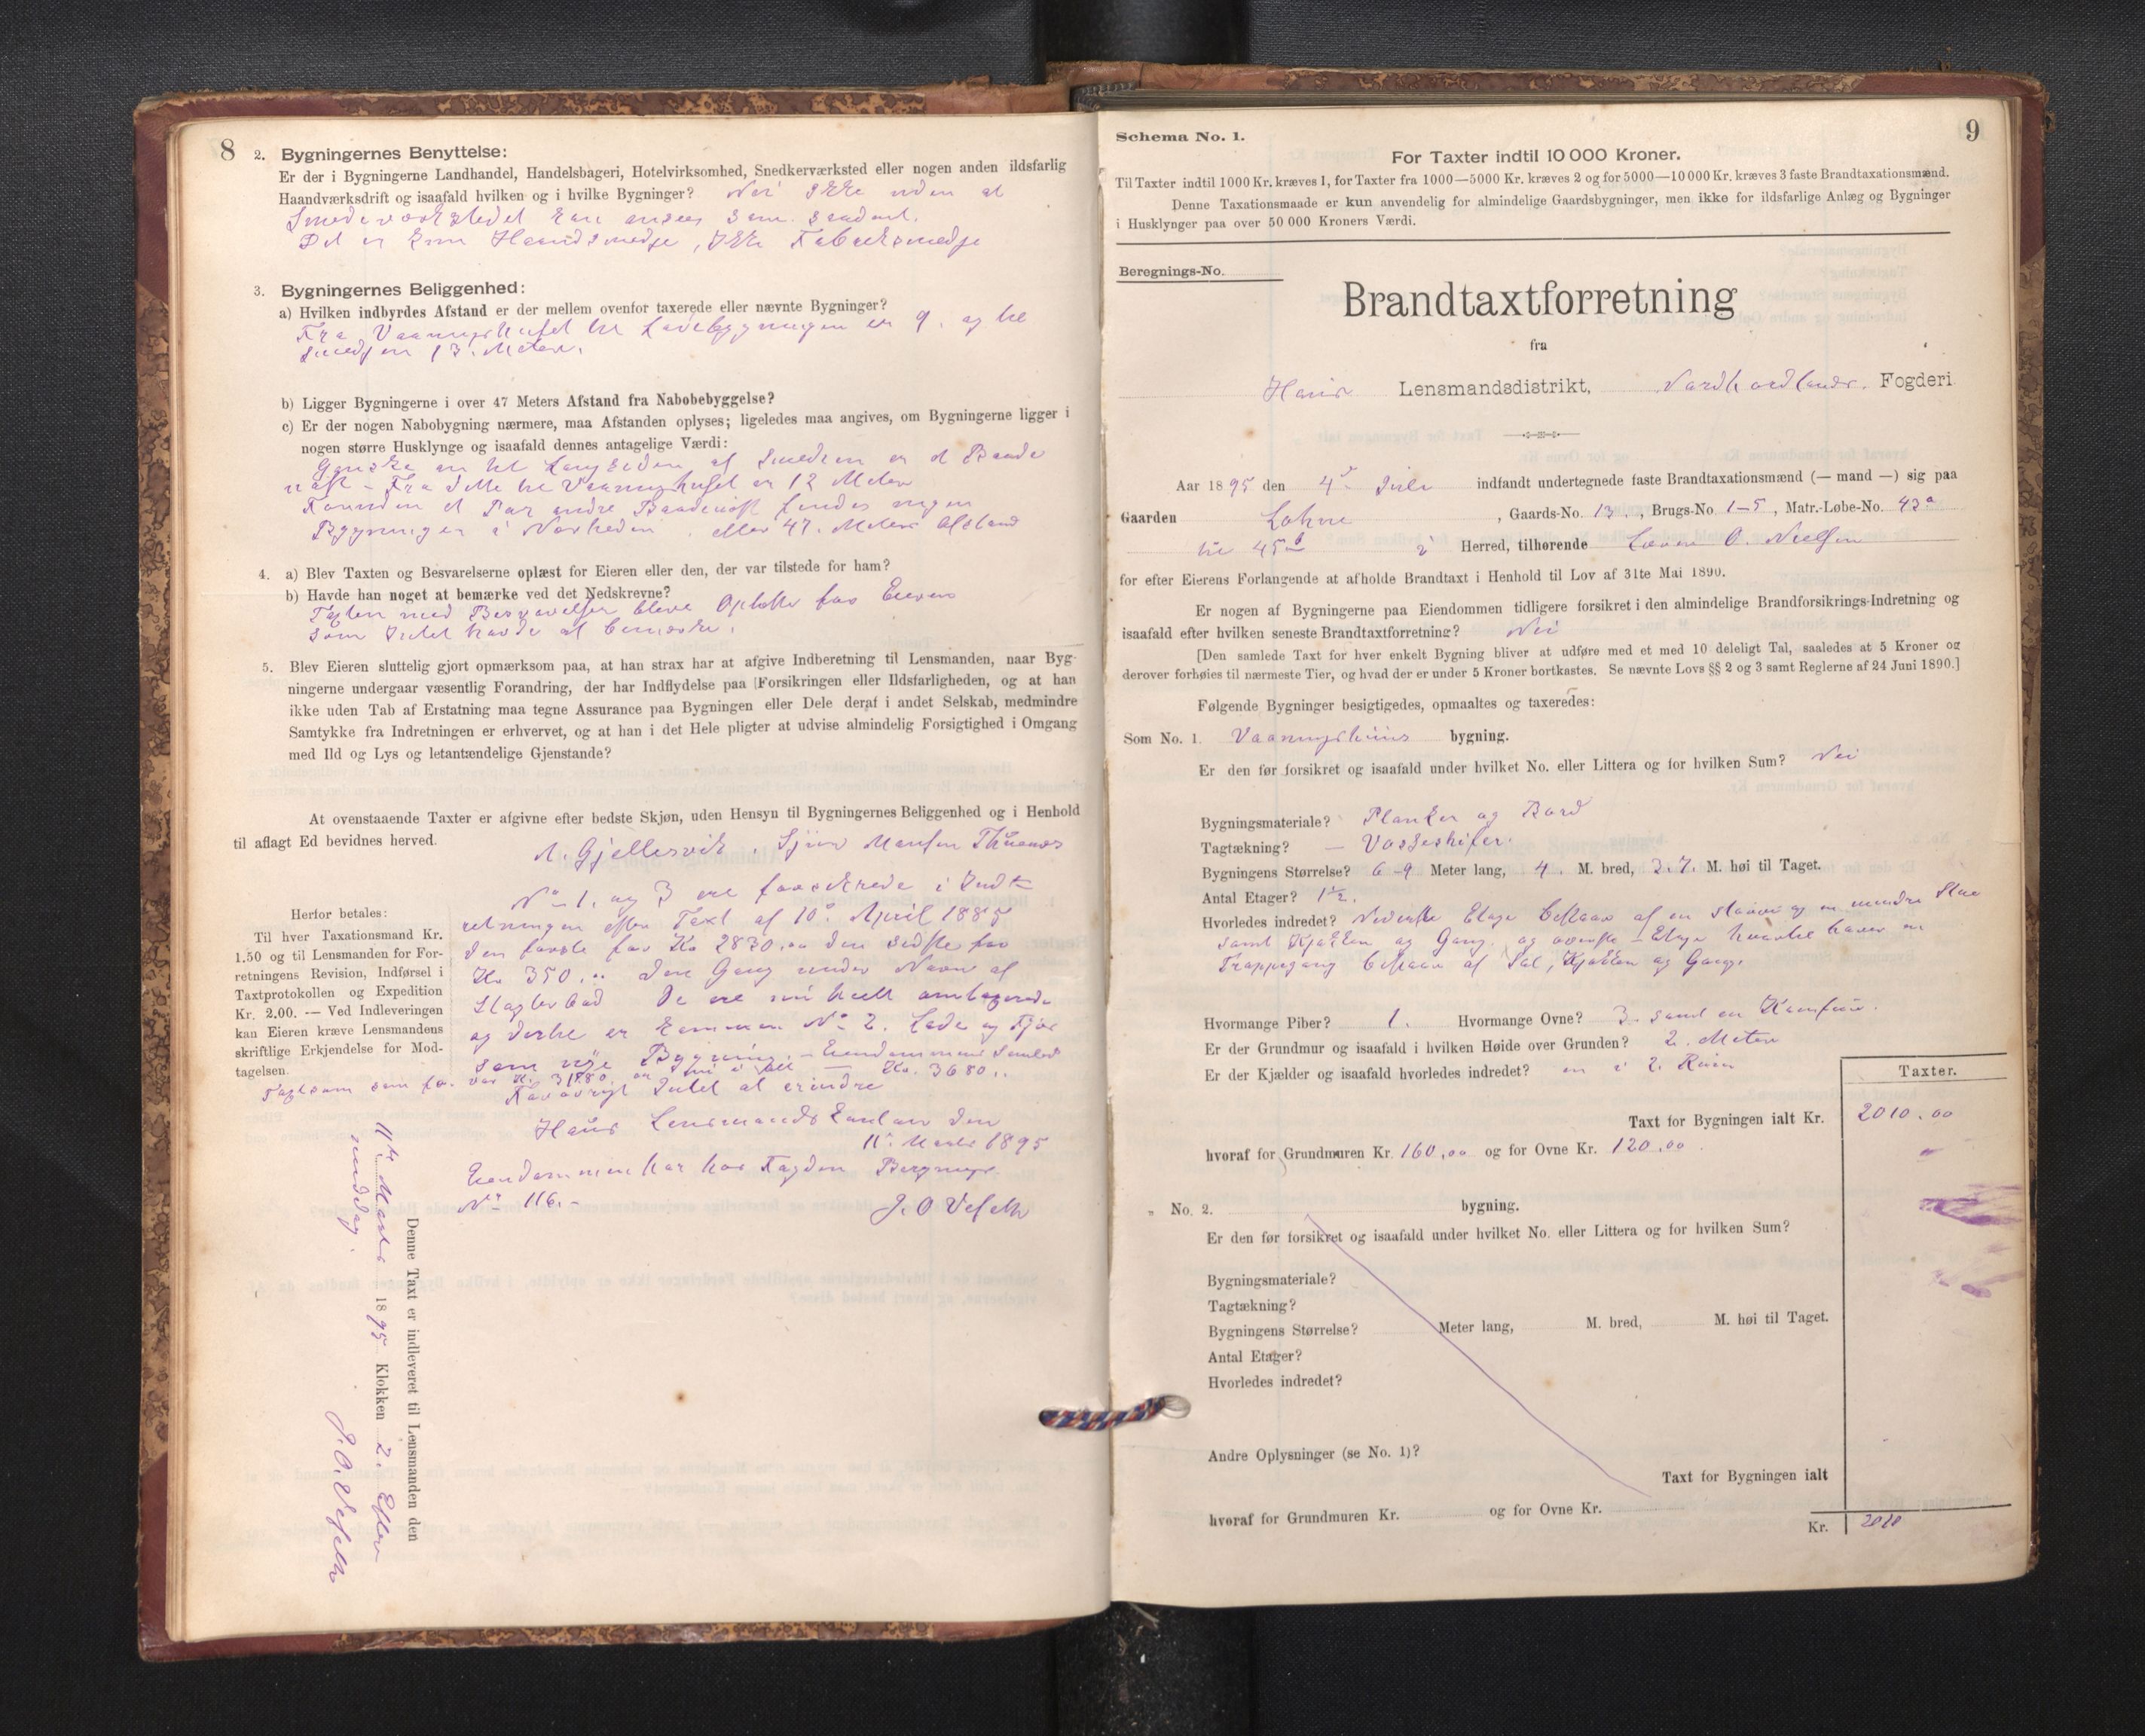 8
2. Bygningernes Benyttelse:
Er der i Bygningerne Landhandel, Handelsbageri, Hotelvirksomhed, Snedkerværksted eller nogen anden ildsfarlig
Haandværksdrift og isaafald hvilken og i hvilke Bygninger? Nei Ikke uden at
Smedeværkstedet kan ansees som saadant.
Det er kun Haandsmedje, Ikke Fabriksmedje
3. Bygningernes Beliggenhed:
a) Hvilken indbyrdes Afstand er der mellem ovenfor taxerede eller nævnte Bygninger?
Fra Vaaningshuset til Ladebygningen er 9. og til
Smedjen 13. Meter.
b) Ligger Bygningerne i over 47 Meters Afstand fra Nabobebyggelse?
c) Er der nogen Nabobygning nærmere, maa Afstanden oplyses; ligeledes maa angives, om Bygningerne ligger i
nogen større Husklynge og isaafald dennes antagelige Værdi:
Ganske en til Langsiden af Smedien er et Baade
nøst – Fra dette til Vaaningshuset er 12 Meter
Foruden et Par andre Baadenøst findes ingen
Bygninger i Nærheden, eller 47. Meters Afstand
4. a) Blev Taxten og Besvarelserne oplæst for Eieren eller den, der var tilstede for ham?
b) Havde han noget at bemærke ved det Nedskrevne?
Taxten med Besvarelser bleve Oplæste for Eieren
som Intet havde at bemærke.
5. Blev Eieren sluttelig gjort opmærksom paa, at han strax har at afgive Indberetning til Lensmanden, naar Byg-
ningerne undergaar væsentlig Forandring, der har Indflydelse paa Forsikringen eller Ildsfarligheden, og at han
ikke uden Tab af Erstatning maa tegne Assurance paa Bygningen eller Dele deraf i andet Selskab, medmindre
Samtykke fra Indretningen er erhvervet, og at han i det Hele pligter at udvise almindelig Forsigtighed i Omgang
med Ild og Lys og letantændelige Gjenstande?
At ovenstaaende Taxter er afgivne efter bedste Skjøn, uden Hensyn til Bygningernes Beliggenhed og i Henhold
til aflagt Ed bevidnes herved.
A. Gjellesvik. Sjur Monsen
Herfor betales:
Til hver Taxationsmand Kr.
1.50 og til Lensmanden for For-
retningens Revision, Indførsel i
Taxtprotokollen og Expedition
Kr. 2.00. — Ved Indleveringen
kan Eieren kræve Lensmandens
skriftlige Erkjendelse for Mod-
tagelsen.
No 1. og 3 ere forsikrede i Indt
retningen efter Taxt af 10de April 1885
den første for Kr 2830.00 den sidste for
Kr. 350.00 den Gang under Navn af
De ere nu helt ombyggede
og dertil er kommen No 2. Lade og Fjøs
som nye Bygning. – Eiendommens Samlede
Taxtsum som før var Kr. 3180. er nu i alt – Kr. 3680..
Forøvrigt Intet at erindre
Haus Lensmandskontor den
11te Marts 1895
Eiendommen har hos Fogden Beregnings
No 116. –
J. O Veseth
Denne Taxt er indleveret til Lensmanden den
11te Marts 1895 Klokken 2. Efter
middag.
J. O. Veseth
9
Schema No. 1.
For Taxter indtil 10 000 Kroner.
Til Taxter indtil 1000 Kr. kræves 1, for Taxter fra 1000—5000 Kr. kræves 2 og for 5000—10 000 Kr. kræves 3 faste Brandtaxationsmænd.
Denne Taxationsmaade er kun anvendelig for almindelige Gaardsbygninger, men ikke for ildsfarlige Anlæg og Bygninger
i Husklynger paa over 50 000 Kroners Værdi.
Beregnings-No.
Brandtaxtforretning
fra
Haus Lensmandsdistrikt, Nordhordlands Fogderi
Aar 1895 den 4de Juli indfandt undertegnede faste Brandtaxationsmænd (— mand —) sig paa
Gaarden Lohne, Gaards-No. 13., Brugs-No 1–5, Matr.-Løbe-No. 43a
til 45b i Herred, tilhørende O. Nielsen
for efter Eierens Forlangende at afholde Brandtaxt i Henhold til Lov af 31te Mai 1890.
Er nogen af Bygningerne paa Eiendommen tidligere forsikret i den almindelige Brandforsikrings-Indretning og
isaafald efter hvilken seneste Brandtaxtforretning? Nei
[Den samlede Taxt for hver enkelt Bygning bliver at udføre med et med 10 deleligt Tal, saaledes at 5 Kroner og
derover forhøies til nærmeste Tier, og hvad der er under 5 Kroner bortkastes. Se nævnte Lovs §§ 2 og 3 samt Reglerne af 24 Juni 1890.]
Følgende Bygninger besigtigedes, opmaaltes og taxeredes:
Som No. 1. Vaaningshuus bygning.
Er den før forsikret og isaafald under hvilket No. eller Littera og for hvilken Sum? Nei
Bygningsmateriale? Planker og Bord
Tagtækning? – Vosseskifer.
Bygningens Størrelse? 6–9 Meter lang, 4. M. bred, 3.7. M. høi til Taget.
Antal Etager? 1½.
Hvorledes indredet? Nederste Etage bestaar af en større og en mindre Stue
samt Kjøkken og Gang. og øverste Etage hvortil haves en
Trappegang bestaar af Sal, Kjøkken og Gang.
Hvormange Piber? 1. Hvormange Ovne? 3. samt en Komfur.
Er der Grundmur og isaafald i hvilken Høide over Grunden? 2. Meter
Er der Kjælder og isaafald hvorledes indredet? en i 2. Rum
Taxter.
Taxt for Bygningen ialt Kr. 2010.00
hvoraf for Grundmuren Kr. 160,00 og for Ovne Kr. 120.00.
„ No. 2. bygning.
Er den før forsikret og isaafald under hvilket No. eller Littera og for hvilken Sum?
Bygningsmateriale?
Tagtækning?
Bygningens Størrelse? Meter lang, M. bred, M. høi til Taget.
Antal Etager?
Hvorledes indredet?
Andre Oplysninger (se No. 1)?
Taxt for Bygningen ialt
hvoraf for Grundmuren Kr. og for Ovne Kr.
Kr. 2010